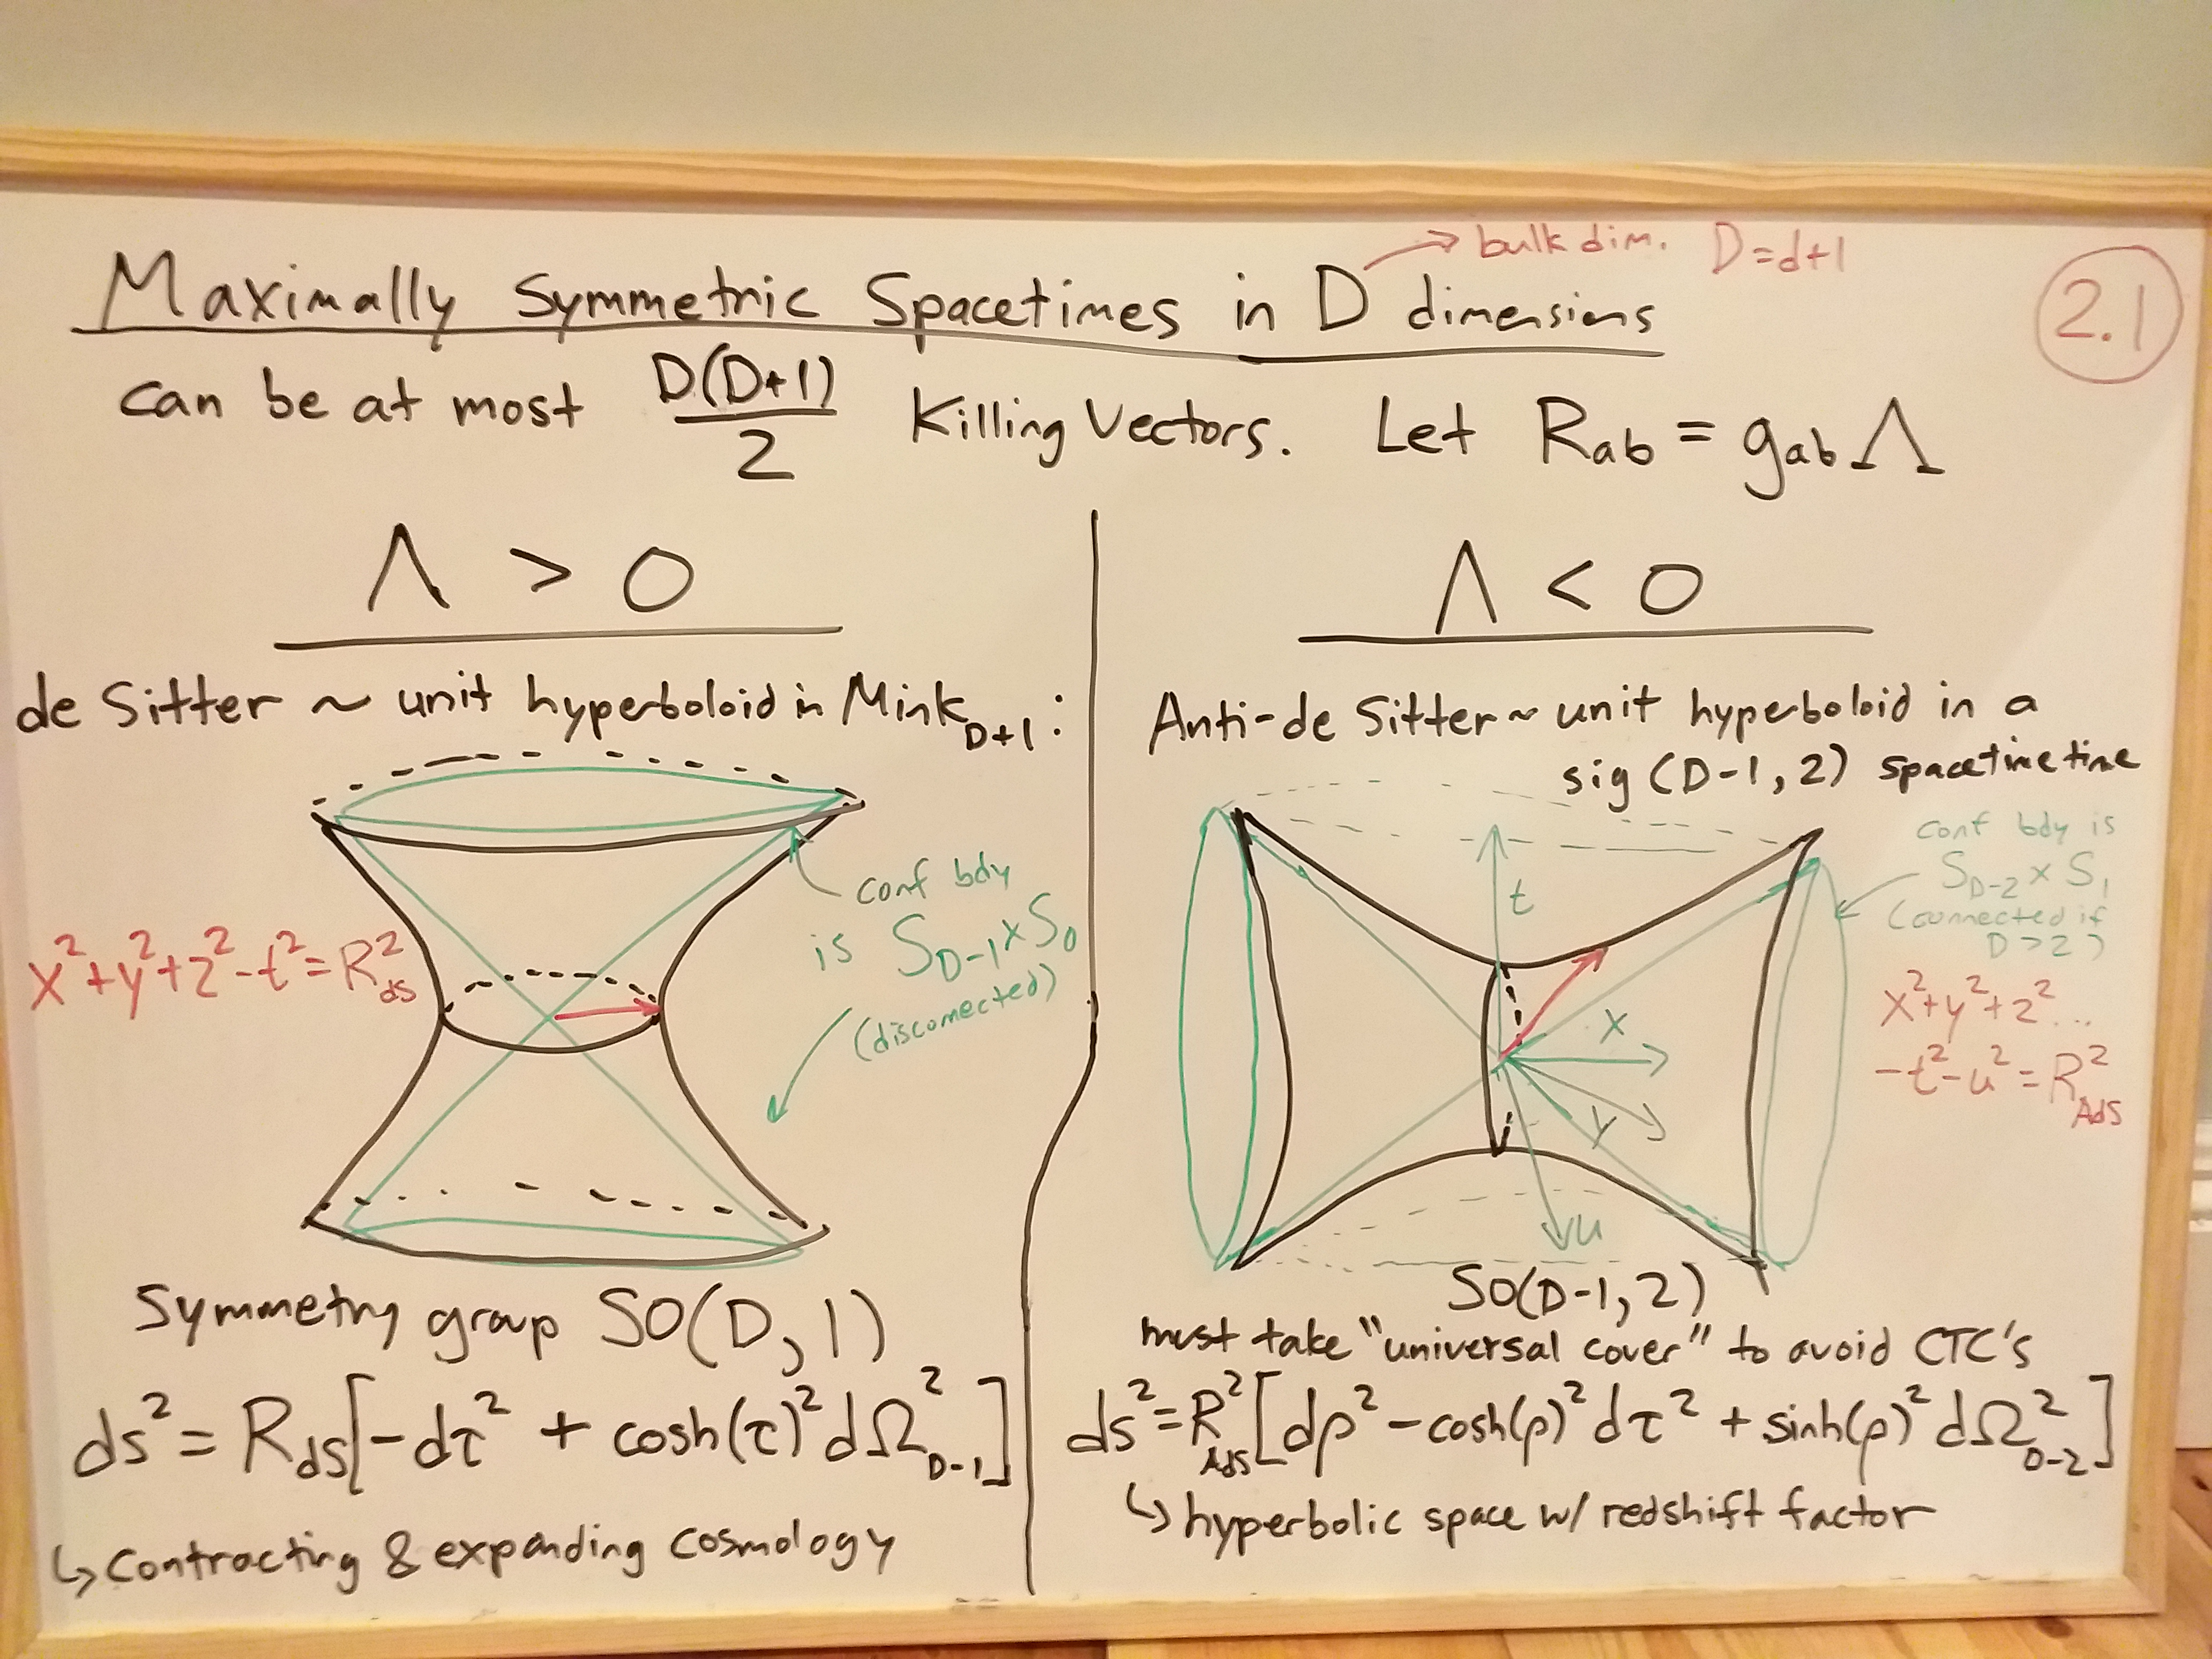 bulk dim. D=d+1
Maximally Symmetric Spacetimes in D dimensions
2.1
can be at most D(D+1)/2 Killing Vectors. Let R_ab = g_ab Λ
Λ > 0
de Sitter ~ unit hyperboloid in Mink_D+1:
conf bdy
is S_D-1 × S_0
(disconnected)
x²+y²+z²-t²=R²_dS
Symmetry group SO(D,1)
ds² = R_dS[-dτ² + cosh(τ)² dΩ²_D-1]
↳ Contracting & expanding cosmology
Λ < 0
Anti-de Sitter ~ unit hyperboloid in a
sig (D-1,2) spacetimetime
conf bdy is
S_D-2 × S_1
(connected if
D>2)
t
x
y
u
x²+y²+z²...
-t²-u²=R²_AdS
SO(D-1,2)
must take "universal cover" to avoid CTC's
ds²=R²_AdS[dρ²-cosh(ρ)²dτ² + sinh(ρ)² dΩ²_D-2]
↳ hyperbolic space w/ redshift factor